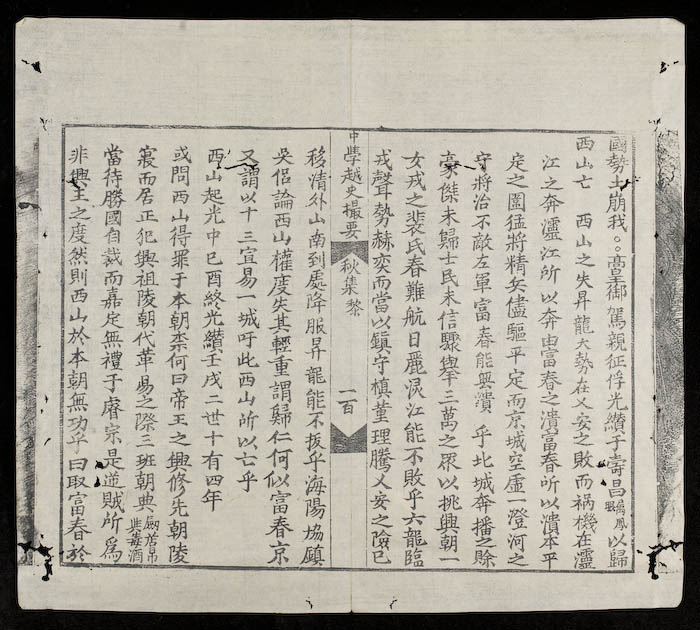 國勢土崩我○○高皇御駕親征俘光纘于壽昌屬鳳眼以歸
西山亡　西山之失昇龍大勢在乂安之敗而禍機在瀘
江之奔瀘江所以奔由富春之潰富春所以潰本平
定之圍猛將精兵儘驅平定而京城空虛一澄河之
守將治不敵左軍富春能無潰　乎北城奔播之餘
豪傑未歸士民未信驟舉三萬之眾以挑興朝一
女戎之裴氏春難航日麗泥江能不敗乎六龍臨
戎聲勢赫奕而當以鎮守槙董理騰乂安之險已
中學越史撮要
秋集黎
一百
移清外山南到處降服昇龍能不拔乎海陽協鎮
吳侶論西山權度失其輕重謂歸仁何似富春京
又謂以十三宣易一城吁此西山所以亡乎
西山起光中己酉終光纘壬戌二世十有四年
或問西山得罪于本朝柰何曰帝王之興修先朝陵
寢而居正犯興祖陵朝代革易之際三班朝典
當待勝國自裁而嘉定無禮于睿宗是逆賊所為
非興王之度然則西山於本朝無功乎曰取富春於